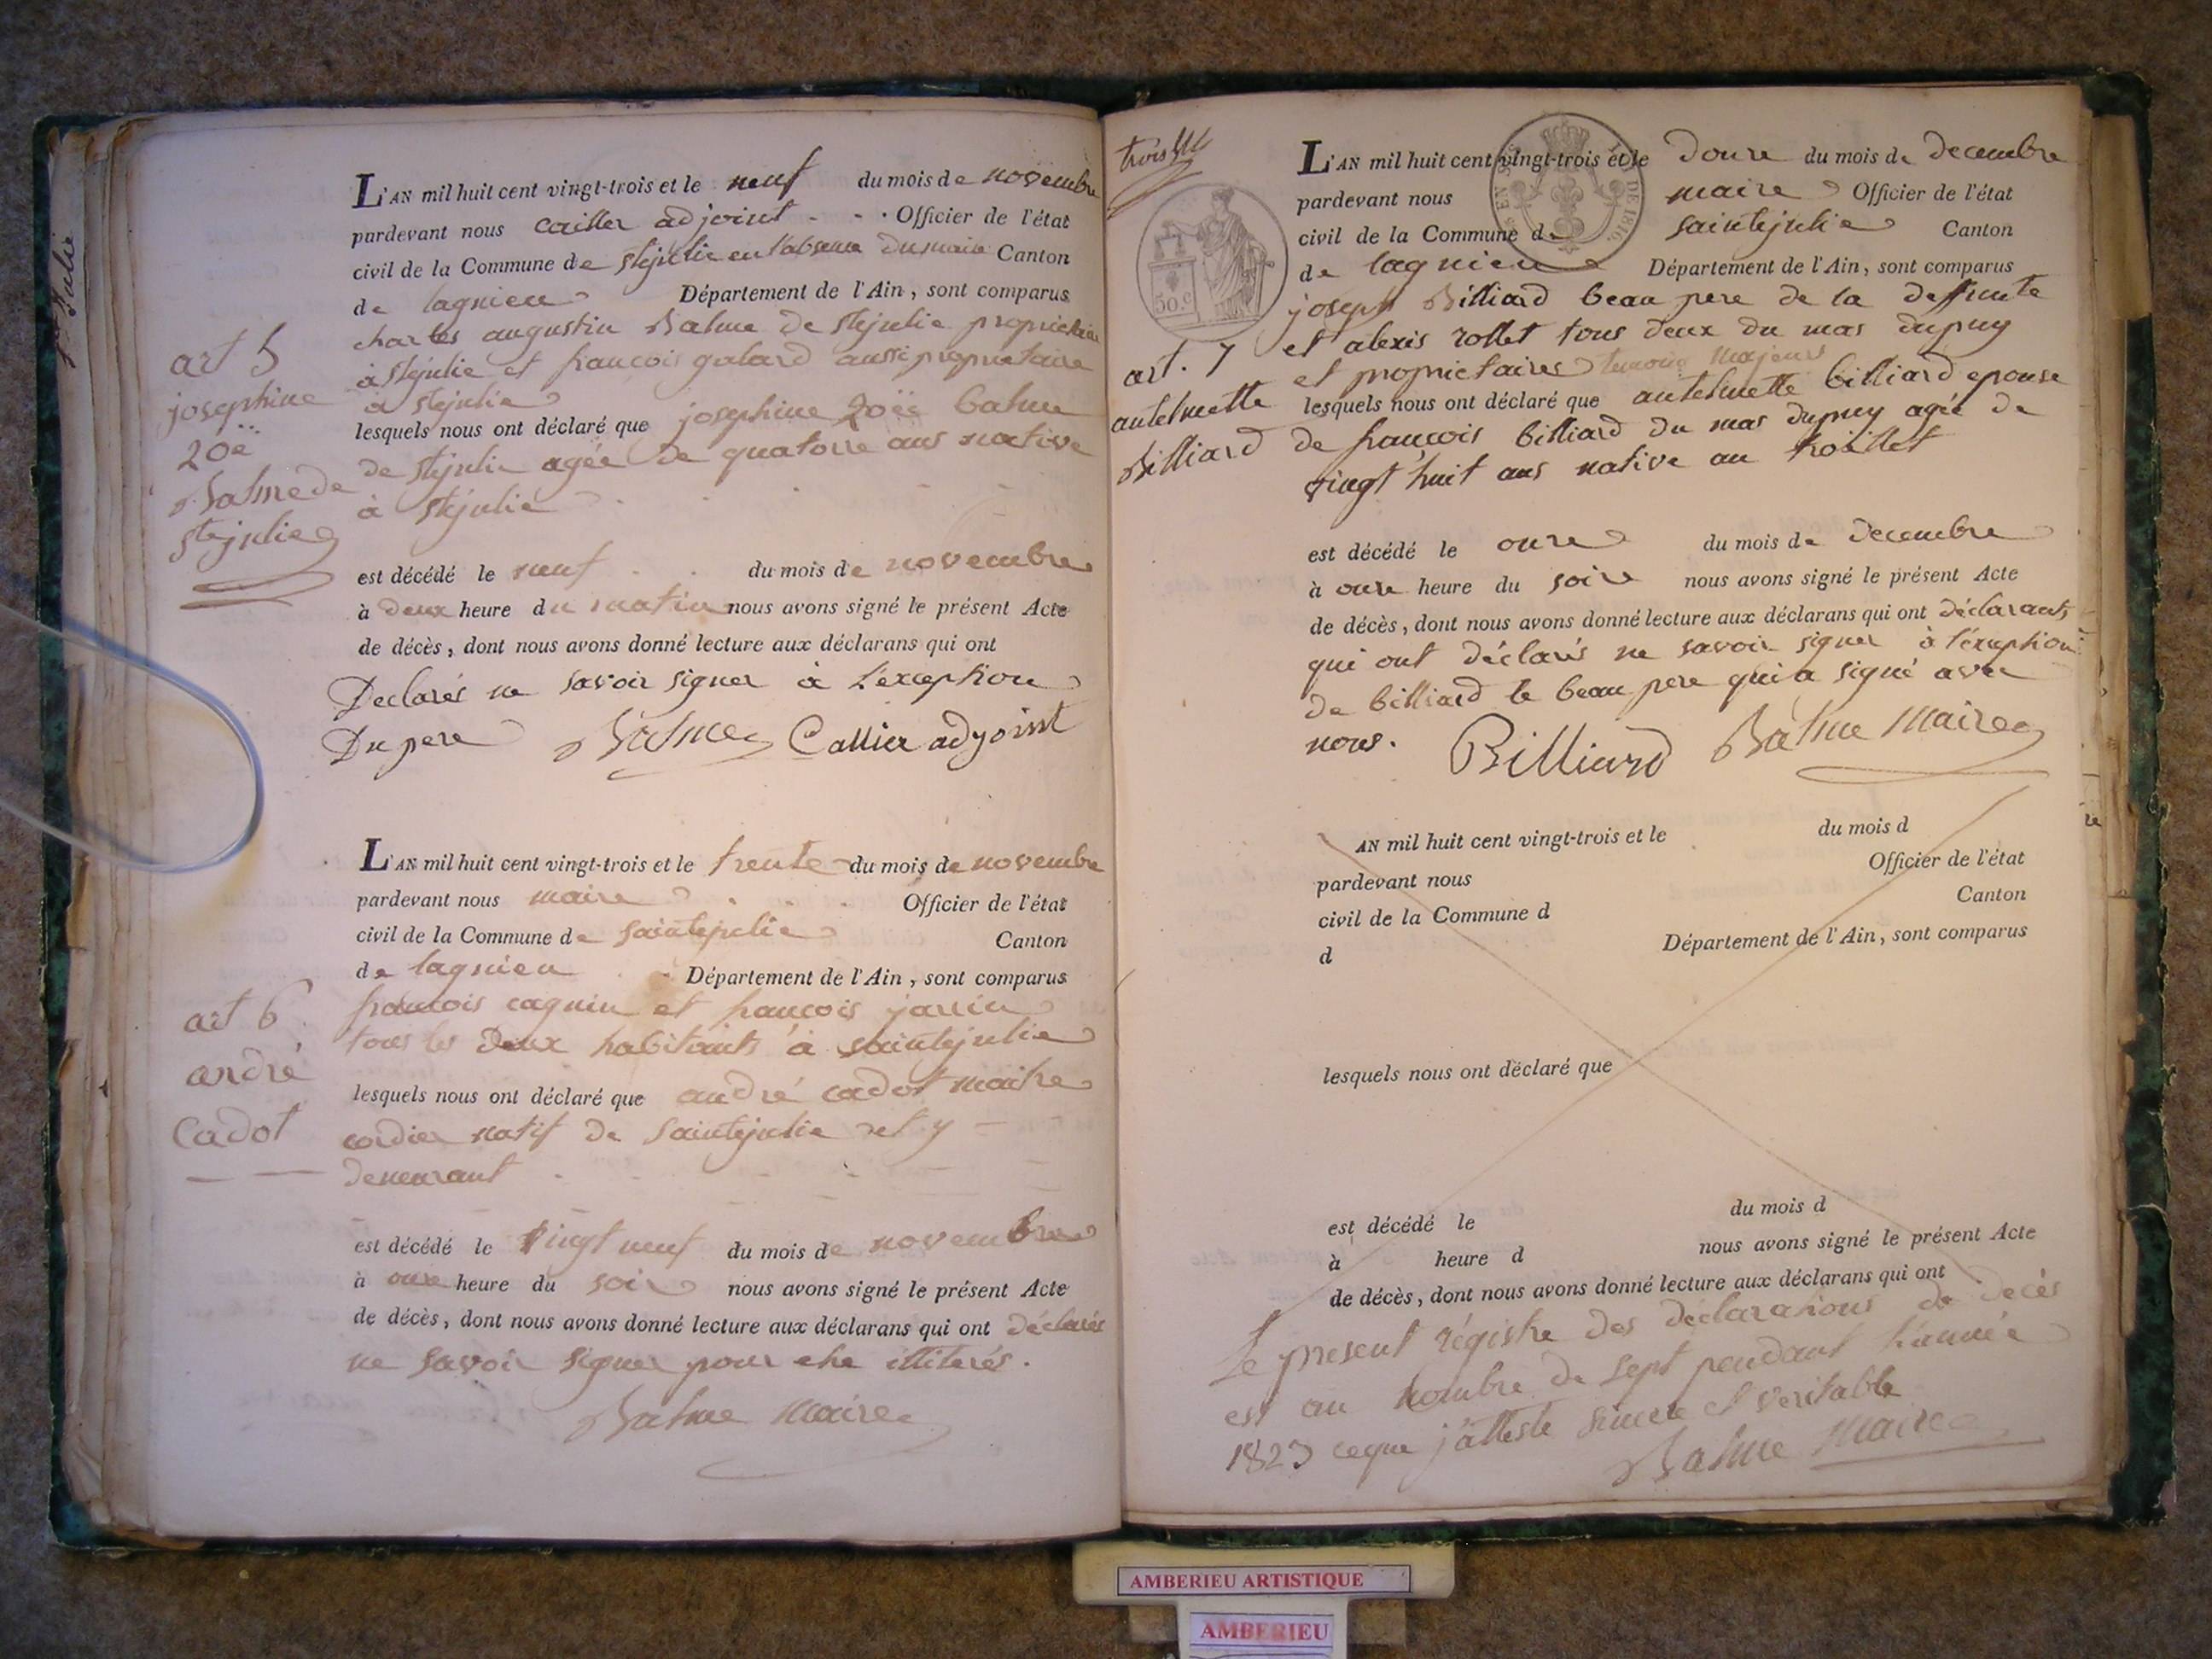 Ste Julie
L'AN mil huit cent vingt-trois et le neuf du mois de novembre
pardevant nous cailler adjoint - - . Officier de l'état
civil de la Commune de stejulie en l'absence du maire Canton
de lagnieu Département de l'Ain, sont comparus
charles augustin Balme de stejulie proprietaire
à stejulie et francois galard aussi proprietaire
à stejulie
lesquels nous ont déclaré que josephine Zoë balme
de stejulie agée de quatorze ans native
à stejulie
art 5
josephine
Zoë
Balme de
stejulie
est décédé le neuf du mois de novembre
à deux heure du matin nous avons signé le présent Acte
de décès, dont nous avons donné lecture aux déclarans qui ont
Declarés ne savoir signer à l'exception
Du pere Balme Callier adjoint
L'AN mil huit cent vingt-trois et le trente du mois de novembre
pardevant nous maire Officier de l'état
civil de la Commune de saintejulie Canton
de lagnieu Département de l'Ain, sont comparus
francois cagnin et francois jarrin
tous les deux habitants à saintejulie
lesquels nous ont déclaré que andré cadot maitre
cordier natif de saintejulie et y
demeurant
art 6
andré
Cadot
est décédé le vingt neuf du mois de novembre
à onze heure du soir nous avons signé le présent Acte
de décès, dont nous avons donné lecture aux déclarans qui ont déclarés
ne savoir signer pour etre illiterés.
Balme Maire
trois
50.c
DE 1816.
L'AN mil huit cent vingt-trois et le Douze du mois de decembre
pardevant nous maire Officier de l'état
civil de la Commune de saintejulie Canton
de lagnieu Département de l'Ain, sont comparus
joseph Billiard beau pere de la deffunte
et alexis rollet tous deux du mas dupuy
et proprietaires temoins majeurs
lesquels nous ont déclaré que antelmette billiard epouse
de francois billiard du mas dupuy agée de
vingt huit ans native au troillet
art. 7
antelmette
Billiard
est décédé le onze du mois de decembre
à onze heure du soire nous avons signé le présent Acte
de décès, dont nous avons donné lecture aux déclarans qui ont déclarants
qui ont déclarés ne savoir signer à l'exception
de billiard le beau pere qui a signé avec
nous. Billiard Balme Maire
AN mil huit cent vingt-trois et le du mois d
pardevant nous Officier de l'état
civil de la Commune d Canton
d Département de l'Ain, sont comparus
lesquels nous ont déclaré que
est décédé le du mois d
à heure d nous avons signé le présent Acte
de décès, dont nous avons donné lecture aux déclarans qui ont
Le present régistre des déclarations de decès
est au nombre de sept pendant l'année
1823 ceque j'atteste sincere et veritable
Balme Maire
AMBERIEU ARTISTIQUE
AMBERIEU